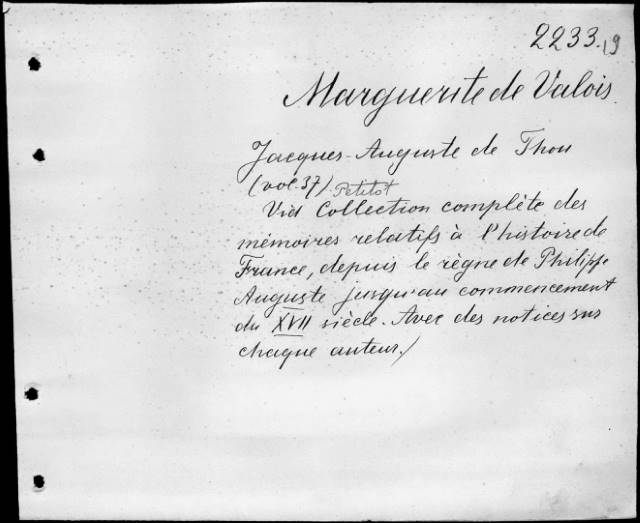 2233.19
Marguerite de Valois
Jacques-Auguste de Thou
(vol.37) Petitot
Vid Collection complète des
mémoires relatifs à l'histoire de
France, depuis le règne de Philippe
Auguste jusqu'au commencement
du XVII siècle. Avec des notices sur
chaque auteur./